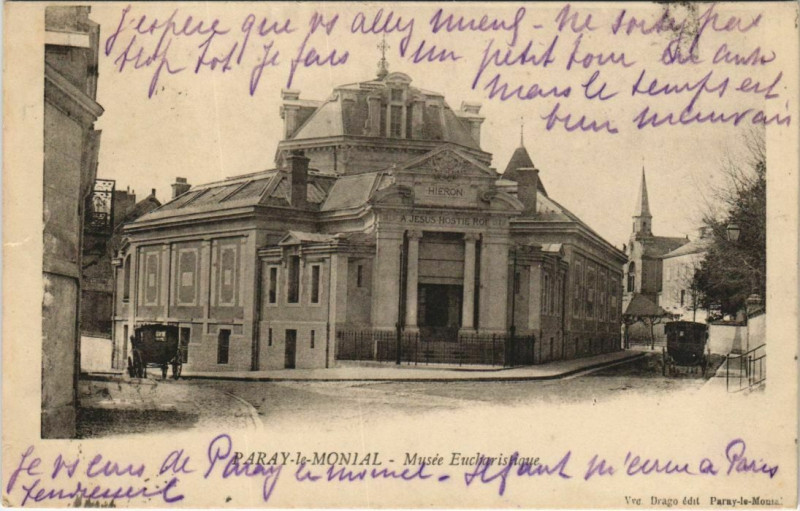 J'espère que vs allez mieux - Ne sortez pas
trop tot Je fais un petit tour
mais le temps est
bien mauvais
HIERON
A JESUS-HOSTIE ROI
PARAY-le-MONIAL - Musée Eucharistique
Je vs de Paray le monial -
Tendresses
Vve Drago édit Paray-le-Monial